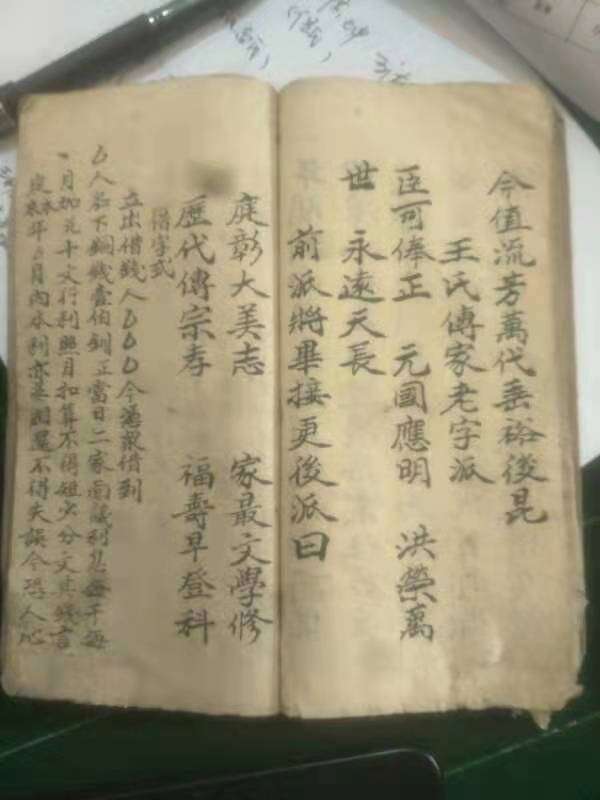 今值流芳萬代垂裕後昆
王氏傳家老字派
臣可俸正 元國應明 洪榮萬
世 永遠天長
前派將畢接更後派曰
庭彰大美志 家最文學修
歷代傳宗孝 福壽早登科
借字式
立出借錢人 今憑眾借到
人名下銅錢壹伯釧正當日二家面議利息每千每
月加元十文行利照月扣算不得短少分文其錢言
定來年 月內本利亦並還不得失誤今恐人心